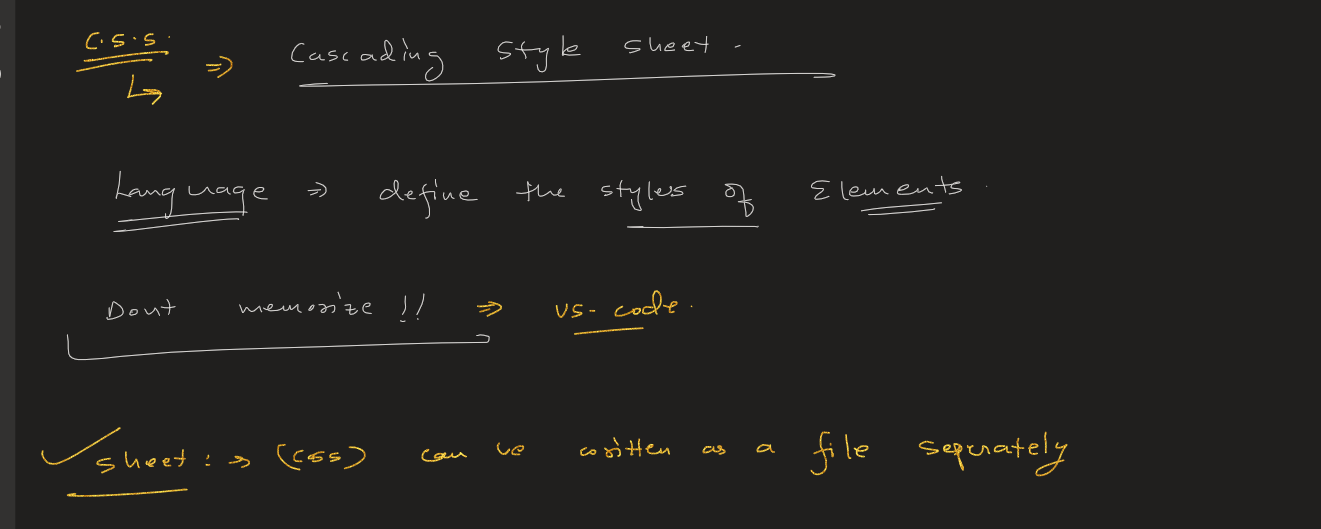 C.S.S. ⇒ Cascading Style sheet.
Language ⇒ define the styles of Elements.
Dont memorize !! ⇒ vs-code.
✓ sheet : → (CSS) can be written as a file seperately